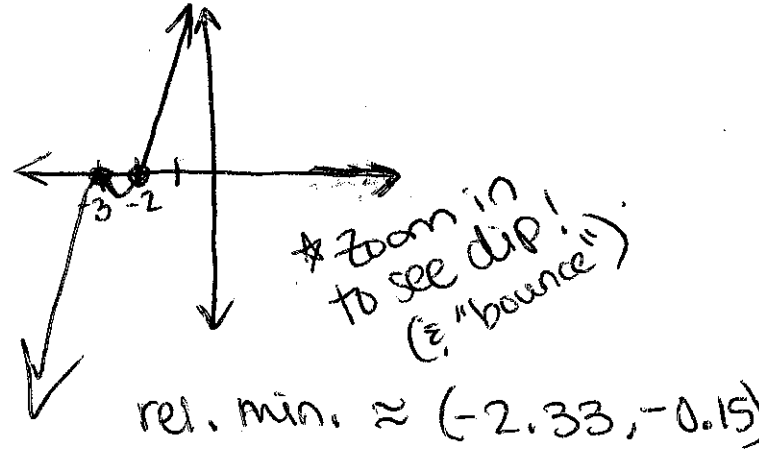 -3 -2
* zoom in
to see dip!
(& "bounce")
rel. min. ≈ (-2.33, -0.15)